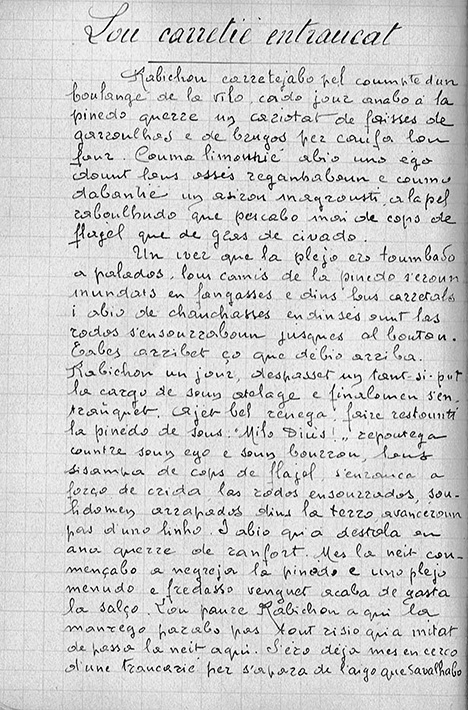 Lou carretiè entrancat
Rabichou carretejabo pel coumpte d'un
boulange de la vilo, cado jour anabo à la
pinedo querre un cariotat de faisses de
garroulhos e de brugos per caufa lou
four. Couma limouniè abio uno ego
dount lous osses reganhaboun e coumo
dabantiè un asirou magrousti, a la pel
raboulhudo que pescabo mai de cops de
flagel que de gras de civado.
Un iver que la plejo ero toumbado
a palados, lous camis de la pinedo s'eroun
inundats en fangasses e dins lous carretals
i abio de chauchasses endinses ount las
rodos s'ensourraboun jusques al boutou.
Tabes arribet ço que debio arriba.
Rabichou un jour, despasset un tant-si-put
la cargo de soun atalage e finalomen s'en-
tranquet. Ajet bel renega, faire restounti
la pinedo de sous "Milo Diùs!", repoutega
countre soun ego e soun bourrou, lous
sisampa de cops de flagel, s'enrauca a
forço de crida las rodos ensourrados, sou-
lidomen arrapados dins la terro, avanceroun
pas d'uno linho. I abio qu'a destela en
ana querre de ranfort. Mes la neit cou-
mençabo a negreja la pinedo e uno plejo
menudo e fredasso venguet acaba de gasta
la salço. Lou paure Rabichou a qui la
manrego parabo pas tout risio qu'a mitat
de passa la neit aqui. S'ero deja mes en cerco
d'une trancariè per s'apara de l'aigo que savalhabo